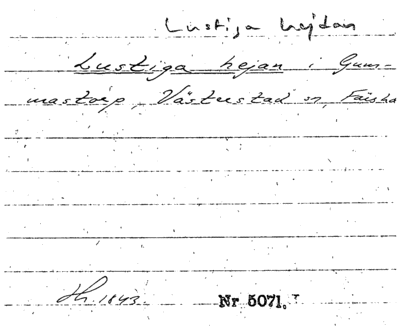 Lustiga hejdan
Lustiga hejan i Gum-
mastorp, Västerstad sn, Färsha
Hh. 1843 Nr 5071.